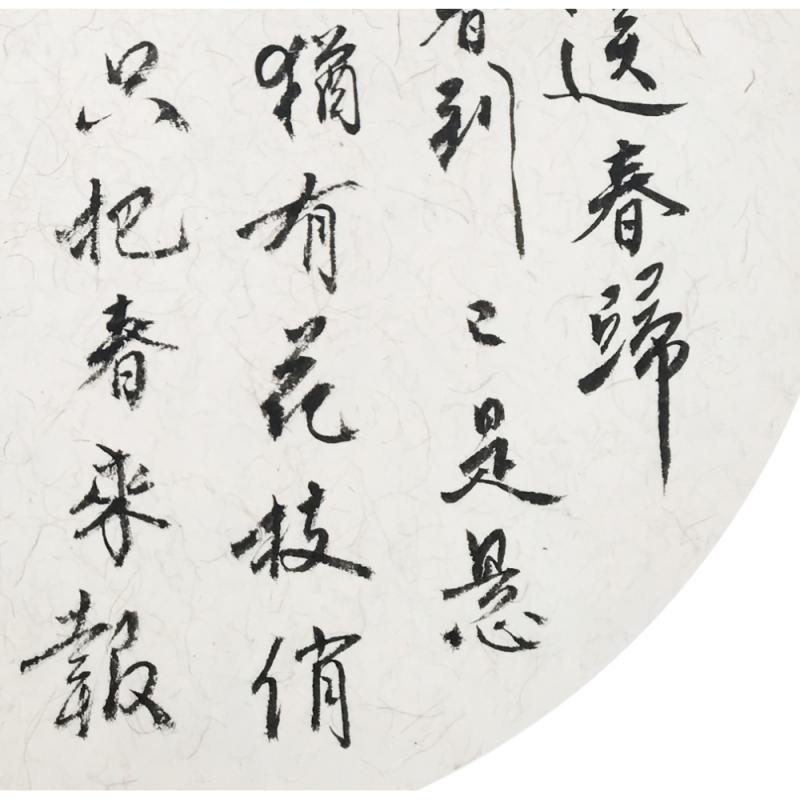 送春歸
到已是懸
猶有花枝俏
只把春來報